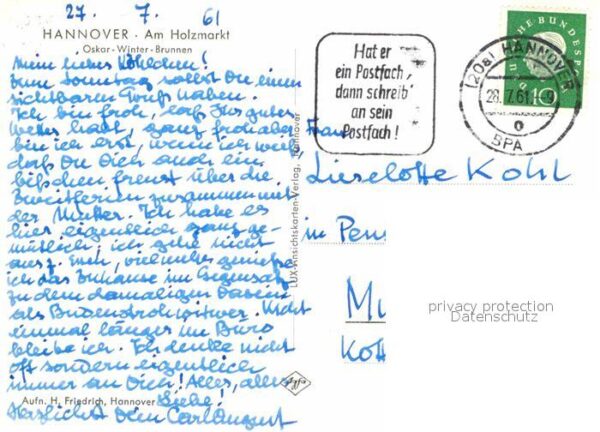 27. 7. 61
HANNOVER · Am Holzmarkt
Oskar-Winter-Brunnen
Mein liebes Kohlchen!
Zum Sonntag sollst Du einen
sichtbaren Gruß haben.
Ich bin froh, daß Ihr gutes
Wetter habt, ganz froh aber
bin ich erst, wenn ich weiß,
daß Du Dich auch ein
bißchen freust über die
Zweitferien zusammen mit
der Mutter. Ich habe es
hier eigentlich ganz ge-
mütlich, ich gehe nicht
aus z. Essen, vielmehr genieße
ich das Zuhause im Gegensatz
zu dem damaligen Dasein
als Bundesstrohwitwer. Nicht
einmal länger im Büro
bleibe ich. Ich denke nicht
oft sondern eigentlich
immer an Dich! Alles, alles
Liebe!
Herzlichst Dein Carlaugust
Aufn. H. Friedrich, Hannover
LUX-Ansichtskarten-Verlag, Hannover
Agfa
Hat er
ein Postfach,
dann schreib'
an sein
Postfach!
(20a) HANNOVER
28. 7. 61. 9
BPA
DEUTSCHE BUNDESPOST
10
Frau
Lieselotte Kohl
in Pens
Mü
Kott
privacy protection
Datenschutz